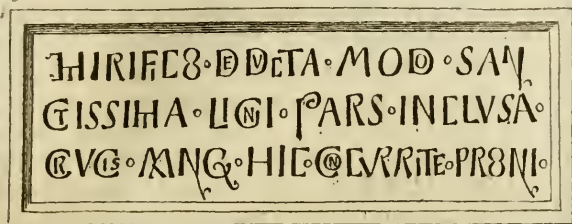 MIRIFICO·DEDVCTA·MODO·SAN
CTISSIMA·LIGNI·PARS·INCLVSA·
CRVCIS·MANET·HIC·CONCVRRITE·PRONI·